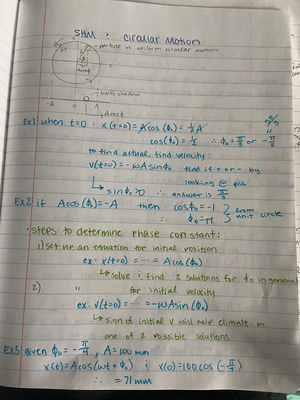 SHM : Circular Motion
particle in uniform circular motion
ball's shadow
-A 0 A
Acosθ
Ex1: when t=0 : x(t=0) = Acos(ϕ₀) = ½A
cos(ϕ₀) = ½ ∴ ϕ₀ = π/3 or -π/3
to find actual, find velocity:
v(t=0) = -wAsinϕ₀ find if + or - by
looking @ pic
↳ sinϕ₀ > 0 ∴ answer is π/3
Ex2: if Acos(ϕ₀) = -A then cosϕ₀ = -1 } from
∴ ϕ₀ = π } unit circle
· steps to determine phase constant:
1) set up an equation for initial position
ex: x(t=0) = ... = Acos(ϕ₀)
↳ solve : find 2 solutions for ϕ₀ in general
2) " for initial velocity
ex: v(t=0) = ... = -wAsin(ϕ₀)
↳ sign of initial v will help eliminate
one of 2 possible solutions
Ex3: given ϕ₀ = -π/4, A = 100 mm
x(t) = Acos(wt + ϕ₀) ; x(0) = 100cos(-π/4)
∴ = 71mm